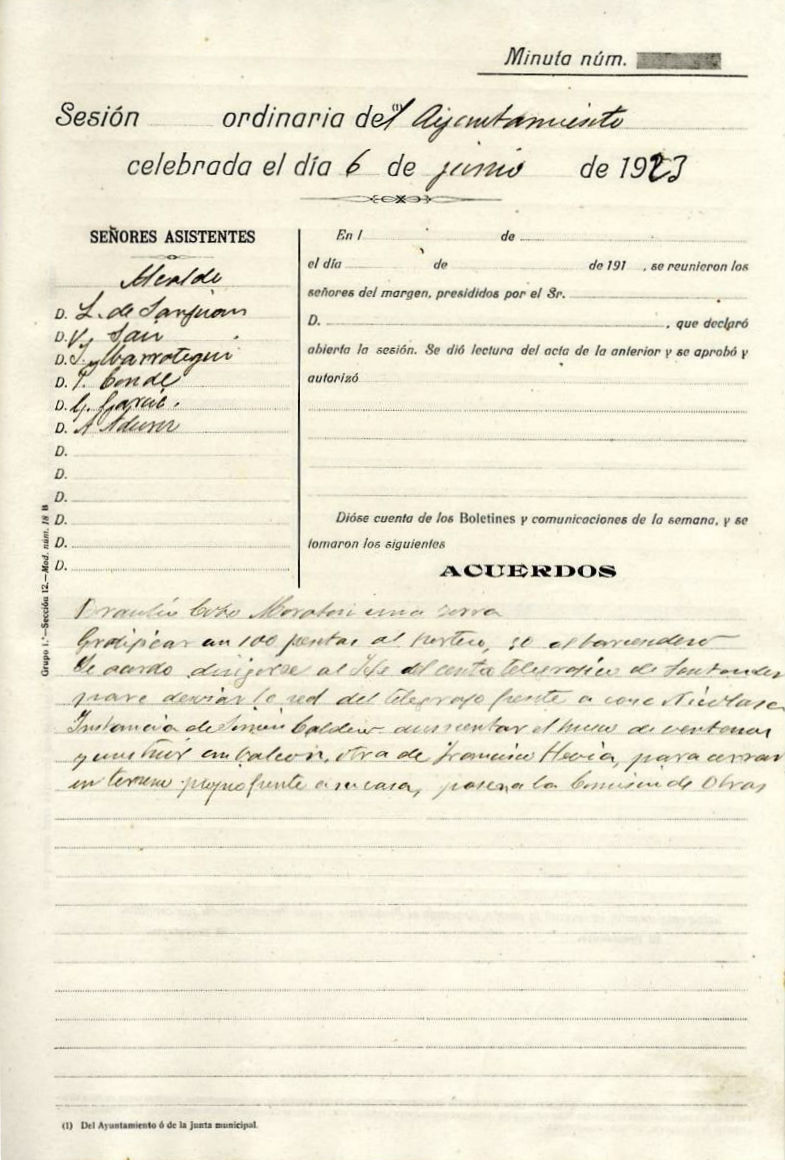 Minuta núm.
Sesión ordinaria del (1) Ayuntamiento
celebrada el día 6 de junio de 1923
SEÑORES ASISTENTES
Alcalde
D. L. de Sanjuan
D. V. Sait
D. T. Ybarrotegui
D. T. Conde
D. G. Garcia.
D. A
D.
D.
D.
D.
D.
D.
En l de
el día de de 191 , se reunieron los
señores del margen, presididos por el Sr.
D. , que declaró
abierta la sesión. Se dió lectura del acta de la anterior y se aprobó y
autorizó
Dióse cuenta de los Boletines y comunicaciones de la semana, y se
tomaron los siguientes
ACUERDOS
Braulio Cobo una
Gratificar con 100 pesetas al portero, 50 al barrendero
Se acordo dirigirse al Jefe del centro telegrafico de Santander
para desviar la red del telegrafo frente a casa Nicolasa
Instancia de Simón Caldero aumentar el hueco de ventanas
y construir un balcón, otra de Francisco Hevia, para cerrar
un terreno propio frente a su casa, pasen a la Comision de Obras
Grupo 1.º—Sección 12.—Mod. núm. 18 B
(1) Del Ayuntamiento ó de la junta municipal.